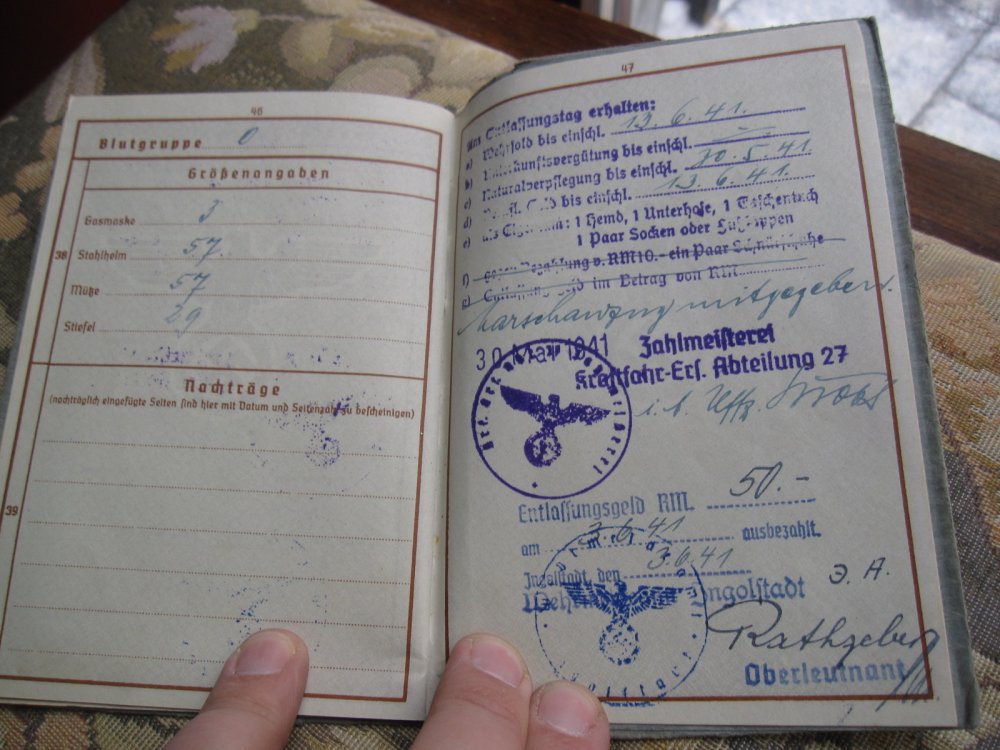 46
Blutgruppe 0
Größenangaben
Gasmaske 3
38
Stahlhelm 57.
Mütze 57
Stiefel 29
Nachträge
(nachträglich eingefügte Seiten sind hier mit Datum und Seitenzahl zu bescheinigen)
39
47
Am Entlassungstag erhalten:
a) Wehrsold bis einschl. 13.6.41.
b) Unterkunftsvergütung bis einschl. –
c) Naturalverpflegung bis einschl. 10.5.41.
d) bis einschl. 13.6.41.
e) als Eigentum: 1 Hemd, 1 Unterhose, 1 Taschentuch
1 Paar Socken oder Fußlappen
f) gegen Bezahlung v. RM10.- ein Paar Schnürschuhe
g) Entlassungsgeld im Betrag von RM
Marschanzug mitgegeben.
30. Mai 1941
Zahlmeisterei
Kraftfahr-Ers. Abteilung 27
i. A. Uffz.
Entlassungsgeld RM. 50.–
am 3.6.41 ausbezahlt.
Ingolstadt, den 3.6.41
Ingolstadt
J. A.
Rathgeber
Oberleutnant